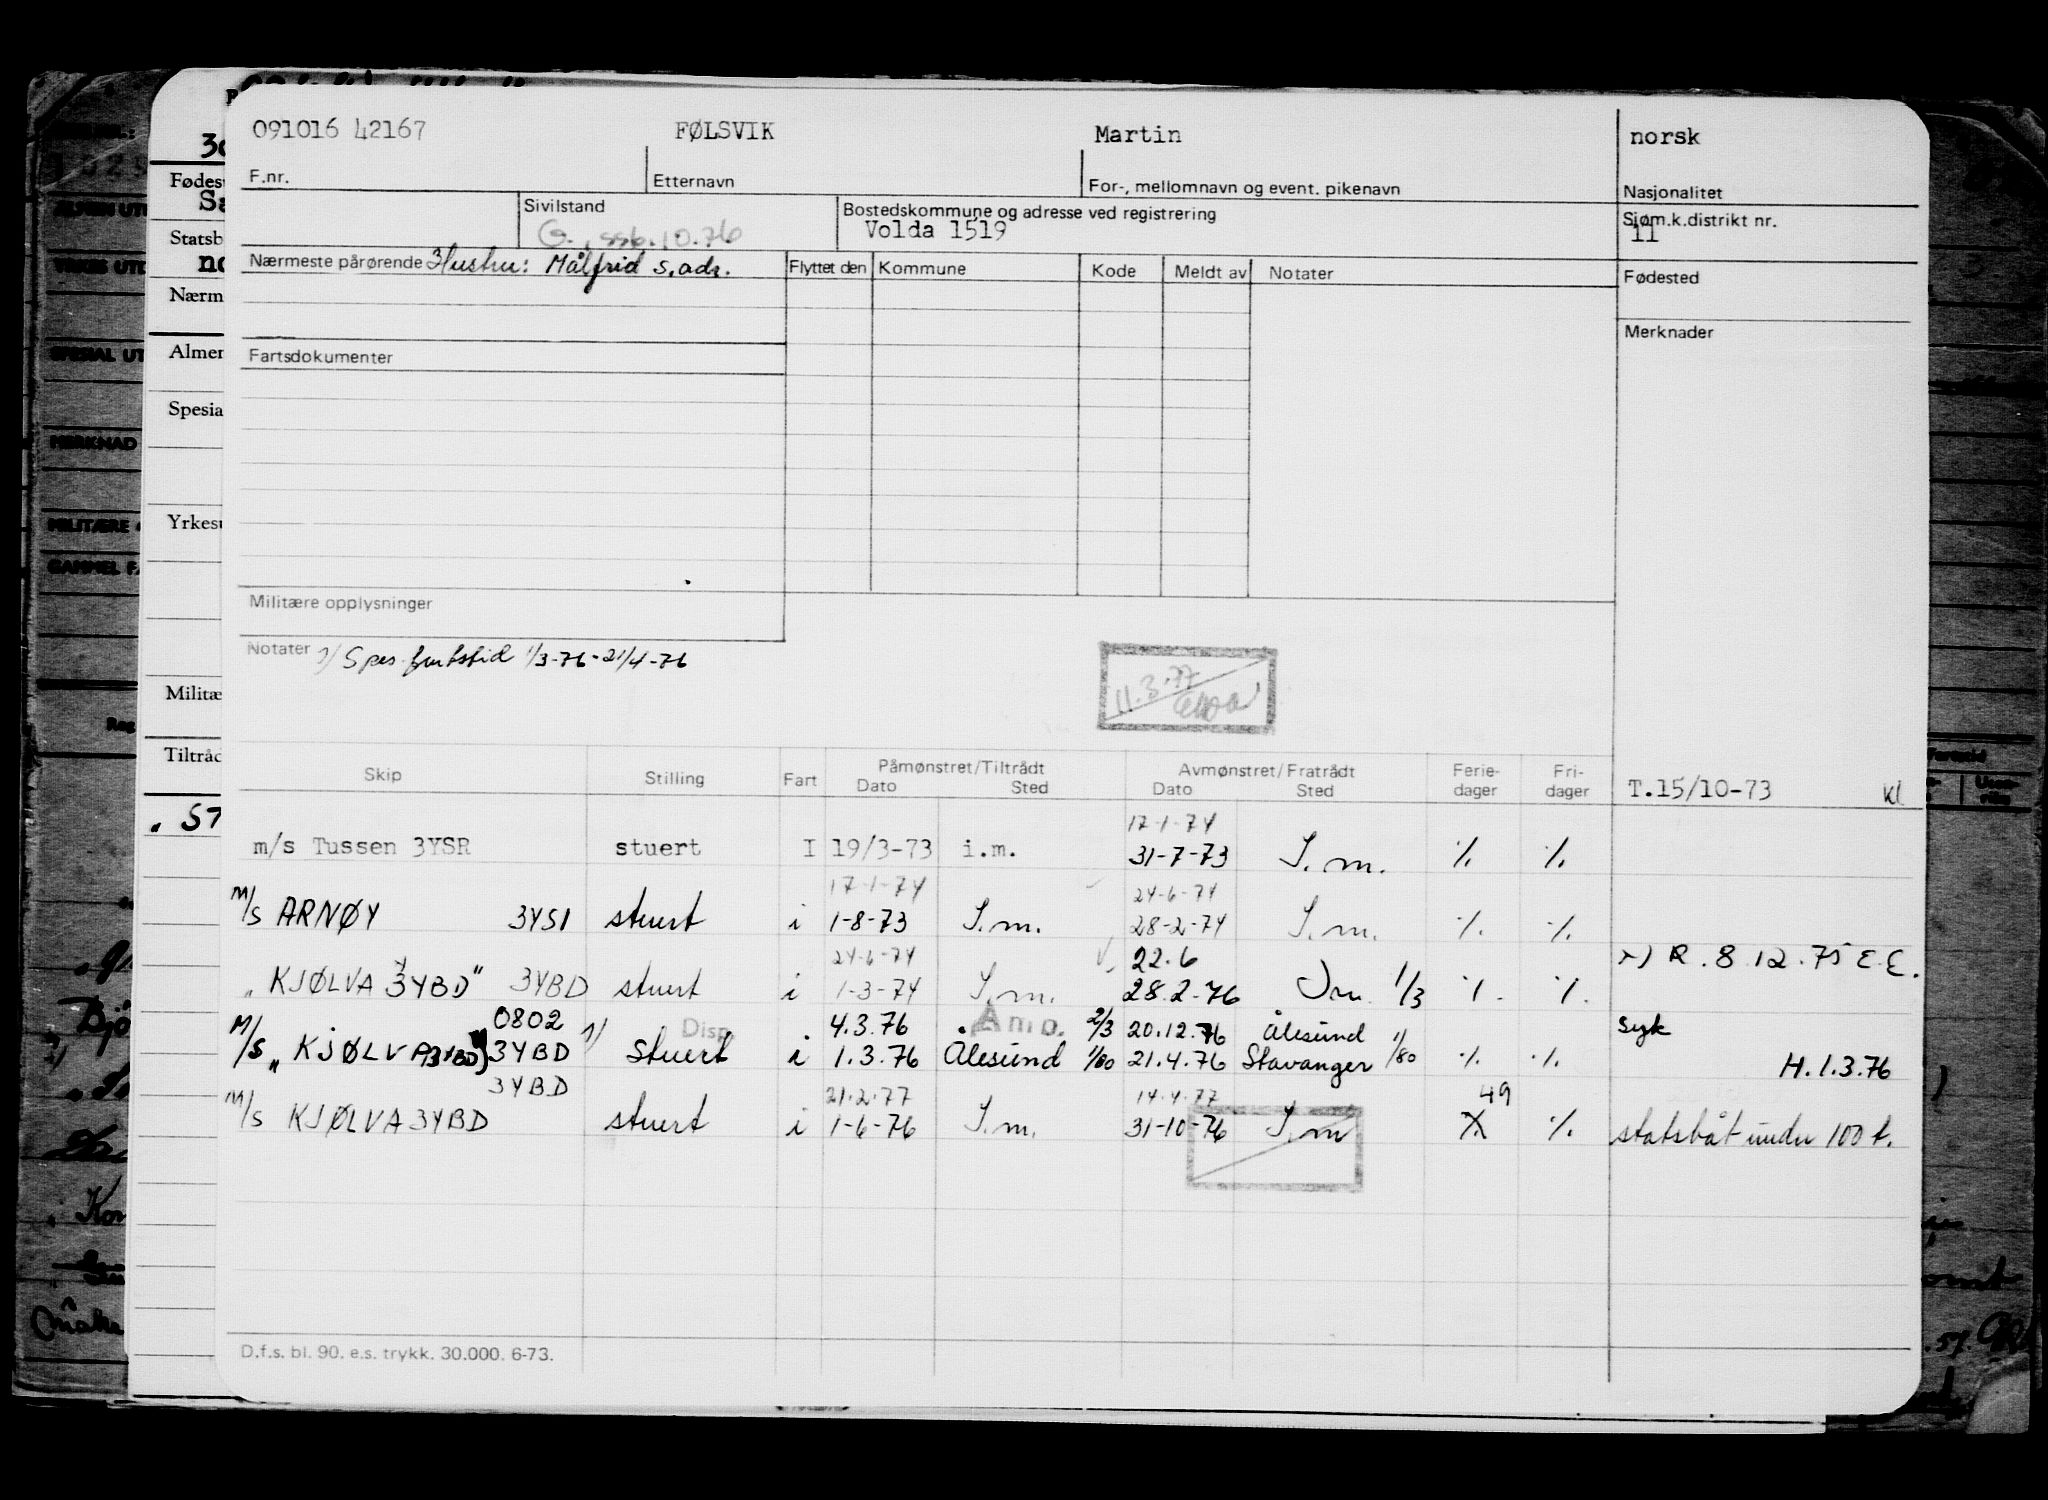 091016 42167 FØLSVIK Martin norsk
F.nr. Etternavn For-, mellomnavn og event. pikenavn Nasjonalitet
Sivilstand Bostedskommune og adresse ved registrering Sjøm.k.distrikt nr.
G., ssb.10.76 Volda 1519 11
Nærmeste pårørende Hustru: Målfrid s.adr. Flyttet den Kommune Kode Meldt av Notater Fødested
Merknader
Fartsdokumenter
Militære opplysninger
Notater 1/ Spes.fartstid 1/3-76-21/4-76
11.3.77
Skip Stilling Fart Påmønstret/Tiltrådt Avmønstret/Fratrådt Ferie- Fri-
Dato Sted Dato Sted dager dager T.15/10-73 kl
17-1-74
m/s Tussen 3YSR stuert I 19/3-73 i.m. 31-7-73 I.m. ·/. ·/.
17-1-74 24-6-74
M/s ARNØY 3YSI stuert i 1-8-73 I.m. 28-2-74 I.m. ·/. ·/.
24-6-74 22.6 x) R. 8.12.75 E.E.
"KJØLVA 3YBD" 3YBD stuert i 1-3-74 I.m. 28.2.76 I.m. 1/3 ·/. ·/.
0802 Disp 4.3.76 Åmo. 2/3 20.12.76 Ålesund syk
M/s "KJØLVA 3YBD" 3YBD 1/ Stuert i 1.3.76 Ålesund 1/80 21.4.76 Stavanger 1/80 ·/. ·/. H.1.3.76
3YBD 21.2.77 14.4.77 49
M/s KJØLVA 3YBD stuert i 1-6-76 I.m. 31-10-76 I.m ·/. ·/. statsbåt under 100 t.
D.f.s. bl. 90. e.s. trykk. 30.000. 6-73.
Fødest
Statsb
Nærm
Almer
Spesia
Yrkesu
Militæ
Tiltråd